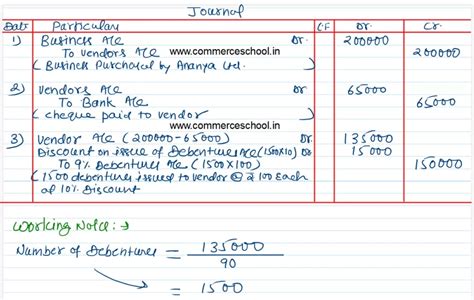 Journal
Date Particulars L.F Dr. Cr.
1) Business A/c Dr. 200000
To Vendors A/c 200000
(Business Purchased by Ananya Ltd.
www.commerceschool.in
2) Vendors A/c 65000
To Bank A/c 65000
(cheque paid to vendor)
www.commerceschool.in
3) Vendor A/c (200000-65000) Dr. 135000
Discount on issue of Debentures A/c (1500X10) Dr 15000
To 9% Debentures A/c (1500X100) 150000
(1500 debentures issued to vendor @ ₹ 100 Each
at 10% Discount
Working Note: →
Number of Debentures = 135000
90
= 1500